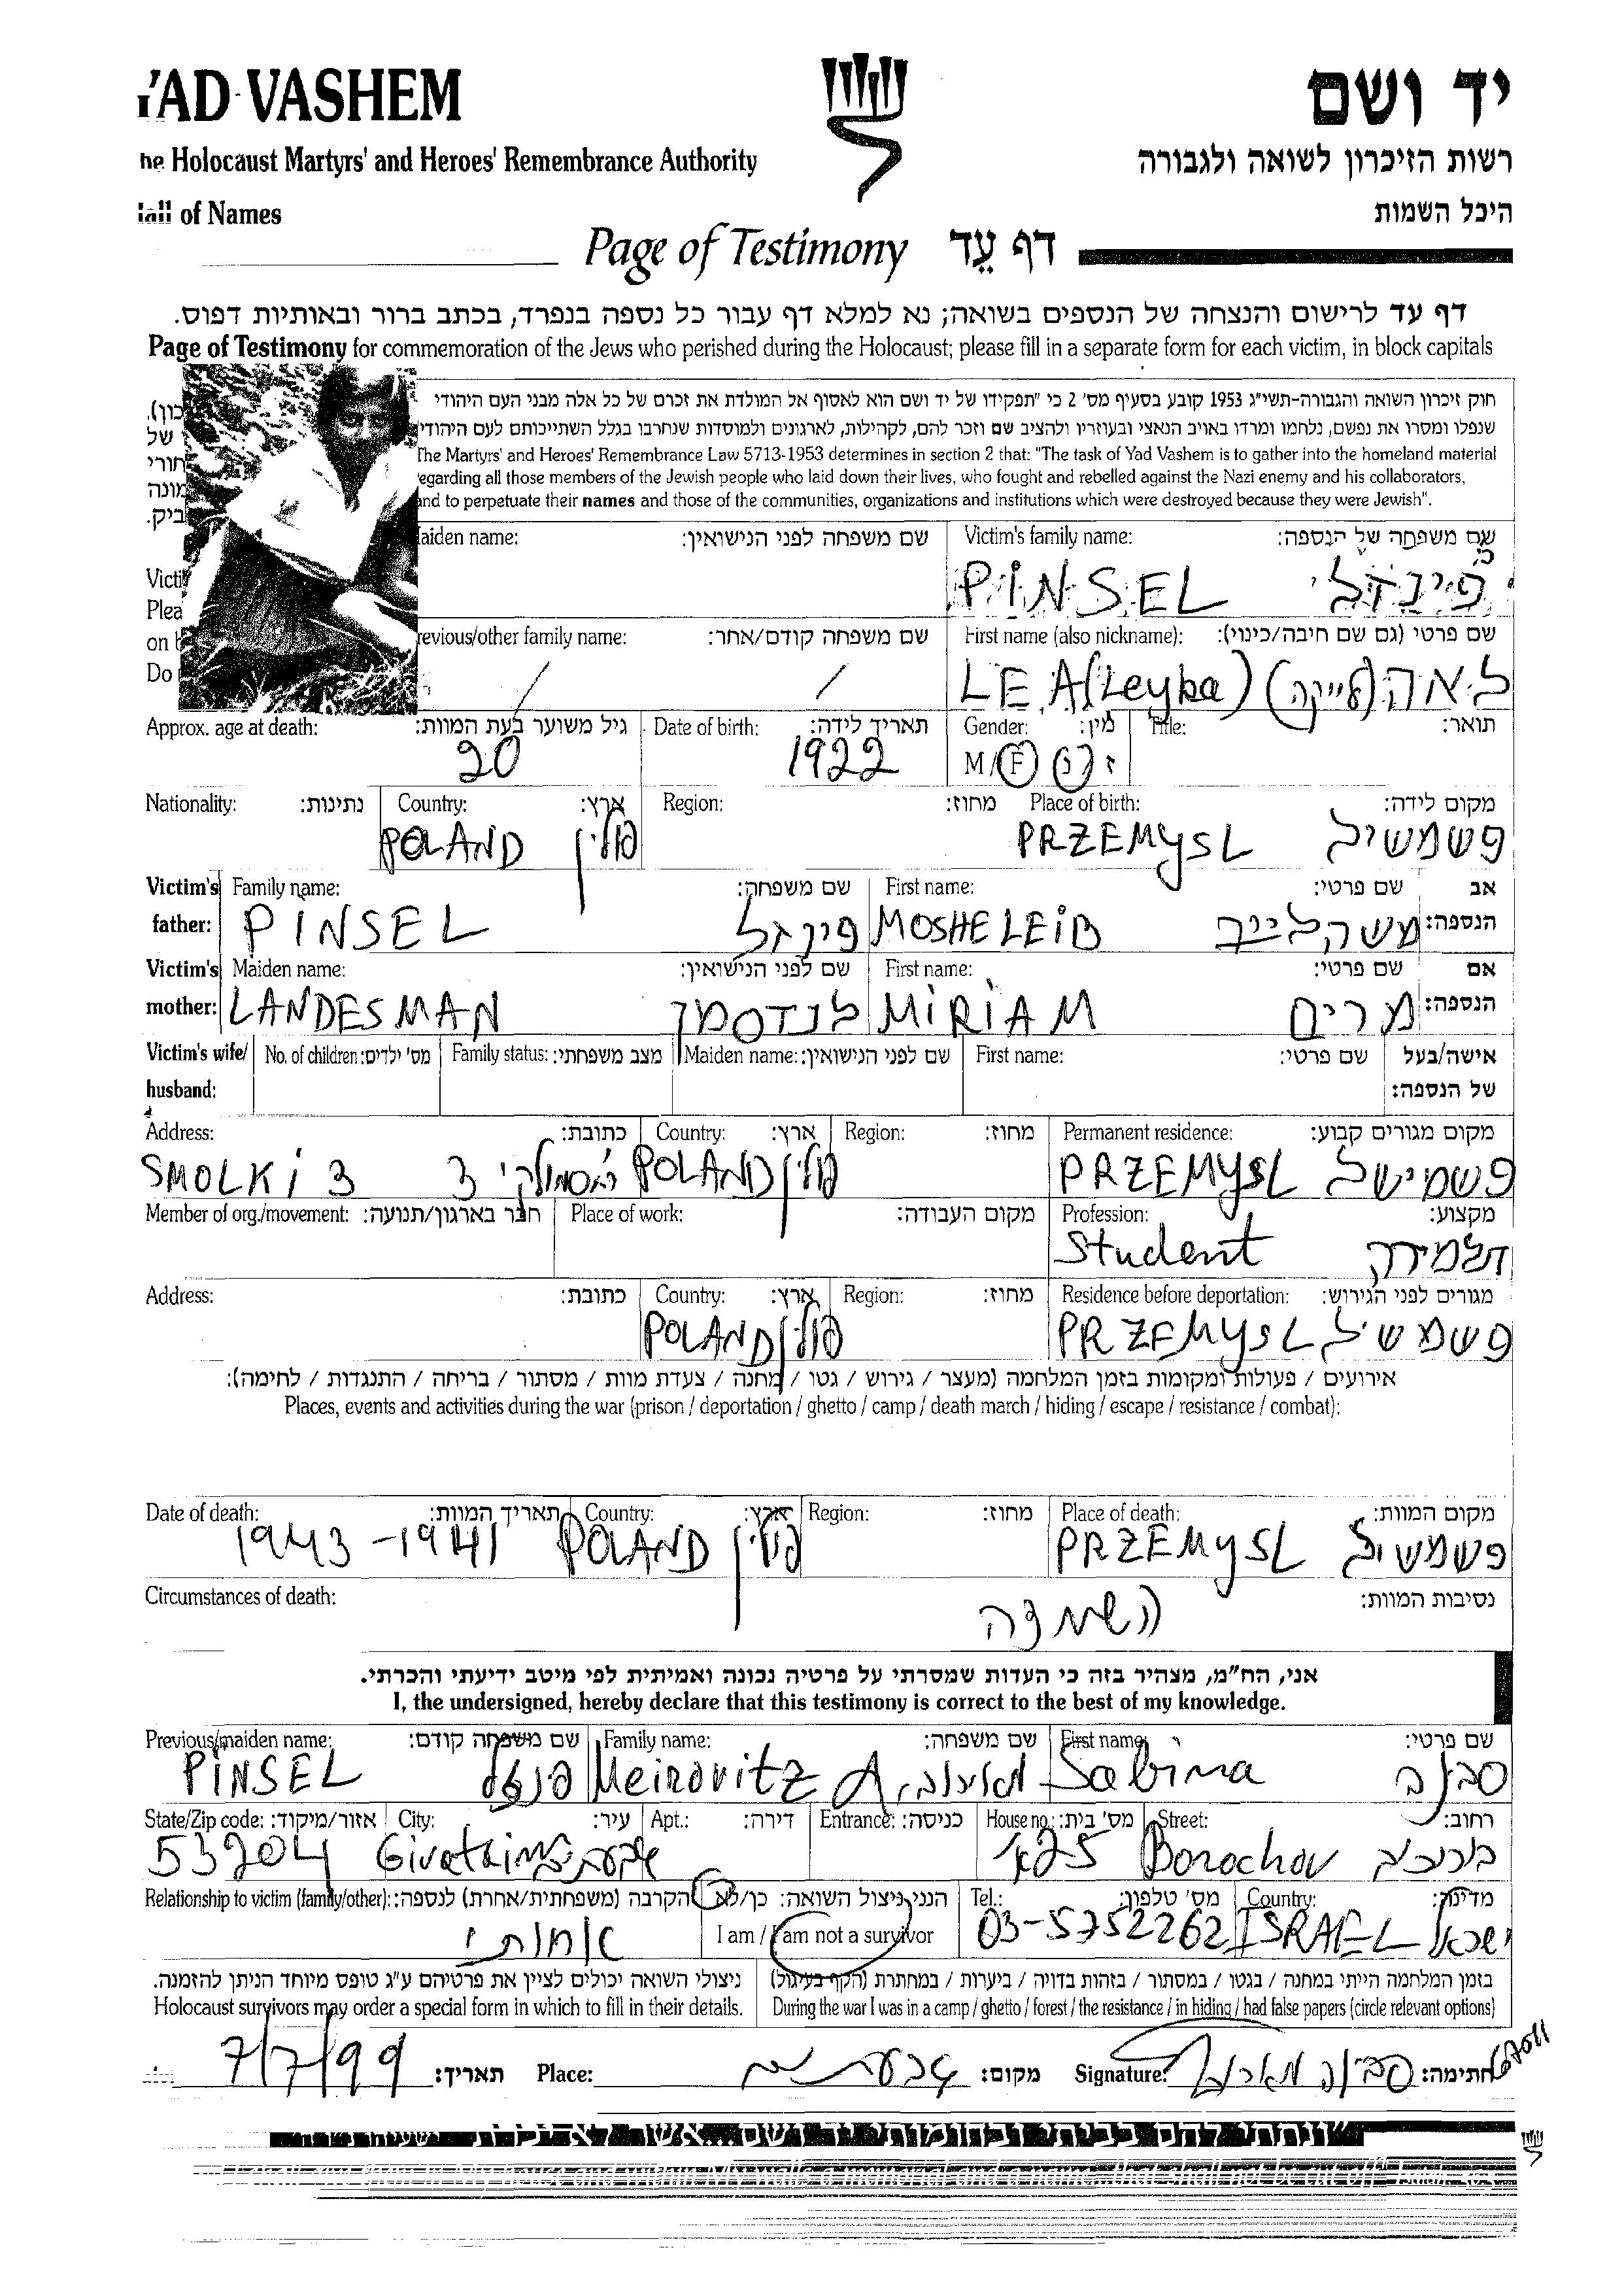 YAD VASHEM
יד ושם
The Holocaust Martyrs' and Heroes' Remembrance Authority
רשות הזיכרון לשואה ולגבורה
Hall of Names
היכל השמות
Page of Testimony דף עֵד
דף עד לרישום והנצחה של הנספים בשואה; נא למלא דף עבור כל נספה בנפרד, בכתב ברור ובאותיות דפוס.
Page of Testimony for commemoration of the Jews who perished during the Holocaust; please fill in a separate form for each victim, in block capitals
חוק זיכרון השואה והגבורה-תשי"ג 1953 קובע בסעיף מס' 2 כי "תפקידו של יד ושם הוא לאסוף אל המולדת את זכרם של כל אלה מבני העם היהודי
שנפלו ומסרו את נפשם, נלחמו ומרדו באויב הנאצי ובעוזריו ולהציב שם וזכר להם, לקהילות, לארגונים ולמוסדות שנחרבו בגלל השתייכותם לעם היהודי
The Martyrs' and Heroes' Remembrance Law 5713-1953 determines in section 2 that: "The task of Yad Vashem is to gather into the homeland material
regarding all those members of the Jewish people who laid down their lives, who fought and rebelled against the Nazi enemy and his collaborators,
and to perpetuate their names and those of the communities, organizations and institutions which were destroyed because they were Jewish".
כון).
של
חורי
מונה
ביק.
Victi
Plea
on b
Do
Maiden name: שם משפחה לפני הנישואין: Victim's family name: שם משפחה של הנספה:
PINSEL פינזל
Previous/other family name: שם משפחה קודם/אחר: First name (also nickname): שם פרטי (גם שם חיבה/כינוי):
/ / LEA (Leyka) לאה (לייקה)
Approx. age at death: גיל משוער בעת המוות: Date of birth: תאריך לידה: Gender: מין: Title: תואר:
20 1922 M / F ז נ
Nationality: נתינות: Country: ארץ: Region: מחוז: Place of birth: מקום לידה:
POLAND פולין PRZEMYSL פשמישל
Victim's father: Family name: שם משפחה: First name: שם פרטי: אב הנספה:
PINSEL פינזל MOSHE LEIB משה לייב
Victim's mother: Maiden name: שם לפני הנישואין: First name: שם פרטי: אם הנספה:
LANDESMAN לנדסמן MIRIAM מרים
Victim's wife/ husband: No. of children: מס' ילדים: Family status: מצב משפחתי: Maiden name: שם לפני הנישואין: First name: שם פרטי: אישה/בעל של הנספה:
Address: כתובת: Country: ארץ: Region: מחוז: Permanent residence: מקום מגורים קבוע:
SMOLKI 3 3 POLAND פולין PRZEMYSL פשמישל
Member of org./movement: חבר בארגון/תנועה: Place of work: מקום העבודה: Profession: מקצוע:
Student תלמידה
Address: כתובת: Country: ארץ: Region: מחוז: Residence before deportation: מגורים לפני הגירוש:
POLAND פולין PRZEMYSL פשמשיל
אירועים / פעולות ומקומות בזמן המלחמה (מעצר / גירוש / גטו / מחנה / צעדת מוות / מסתור / בריחה / התנגדות / לחימה):
Places, events and activities during the war (prison / deportation / ghetto / camp / death march / hiding / escape / resistance / combat):
Date of death: תאריך המוות: Country: ארץ: Region: מחוז: Place of death: מקום המוות:
1943 - 1941 POLAND פולין PRZEMYSL פשמשיל
Circumstances of death: נסיבות המוות:
השמדה
אני, הח"מ, מצהיר בזה כי העדות שמסרתי על פרטיה נכונה ואמיתית לפי מיטב ידיעתי והכרתי.
I, the undersigned, hereby declare that this testimony is correct to the best of my knowledge.
Previous/maiden name: שם משפחה קודם: Family name: שם משפחה: First name: שם פרטי:
PINSEL פנזל Meirovitz A. Sabina סבינה
State/Zip code: אזור/מיקוד: City: עיר: Apt.: דירה: Entrance: כניסה: House no.: מס' בית: Street: רחוב:
53204 Givathaim גבעתיים Borochov בורוכוב
Relationship to victim (family/other): הקרבה (משפחתית/אחרת) לנספה: הנני ניצול השואה: כן/לא Tel.: מס' טלפון: Country: מדינה:
אחותי I am / I am not a survivor 03-5752262 ISRAEL ישראל
ניצולי השואה יכולים לציין את פרטיהם ע"ג טופס מיוחד הניתן להזמנה. בזמן המלחמה הייתי במחנה / בגטו / במסתור / בזהות בדויה / ביערות / במחתרת (הקף בעיגול)
Holocaust survivors may order a special form in which to fill in their details. During the war I was in a camp / ghetto / forest / the resistance / in hiding / had false papers (circle relevant options)
7/7/99 תאריך: Place: גבעתיים מקום: Signature: חתימה: